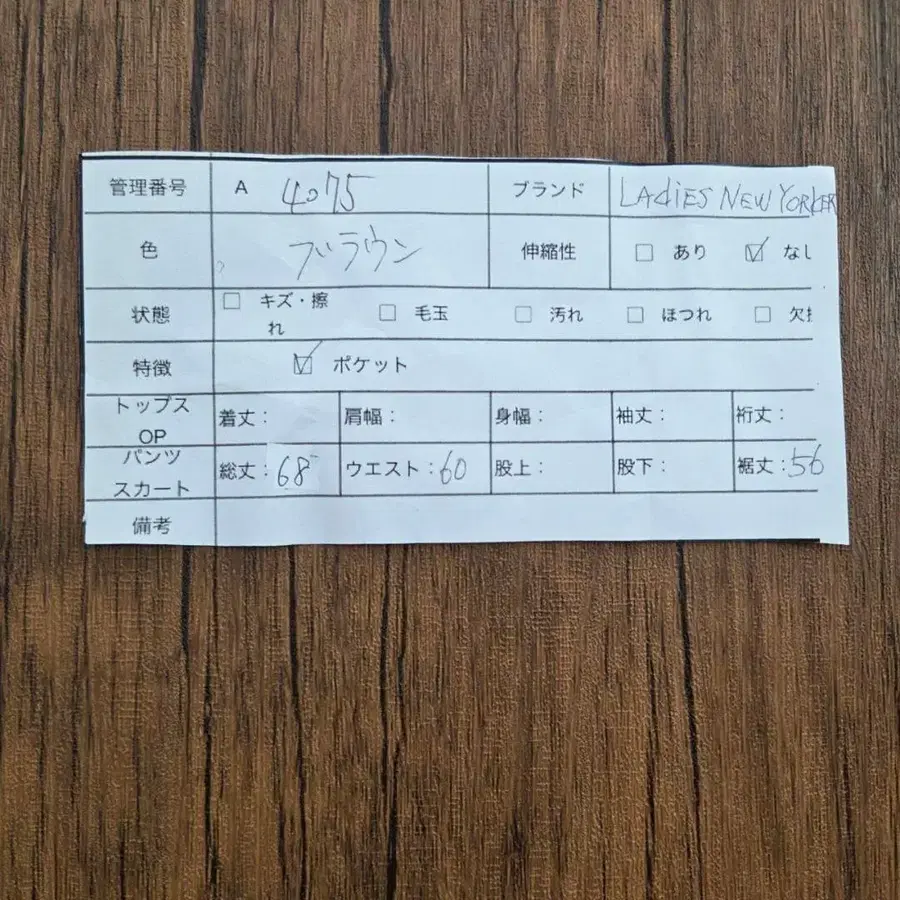 管理番号 A 4075 ブランド LADIES NEW YORKER
色 ブラウン 伸縮性 □ あり ☑ なし
状態 □ キズ・擦れ □ 毛玉 □ 汚れ □ ほつれ □ 欠
特徴 ☑ ポケット
トップス OP 着丈: 肩幅: 身幅: 袖丈: 裄丈:
パンツ スカート 総丈: 68 ウエスト: 60 股上: 股下: 裾丈: 56
備考